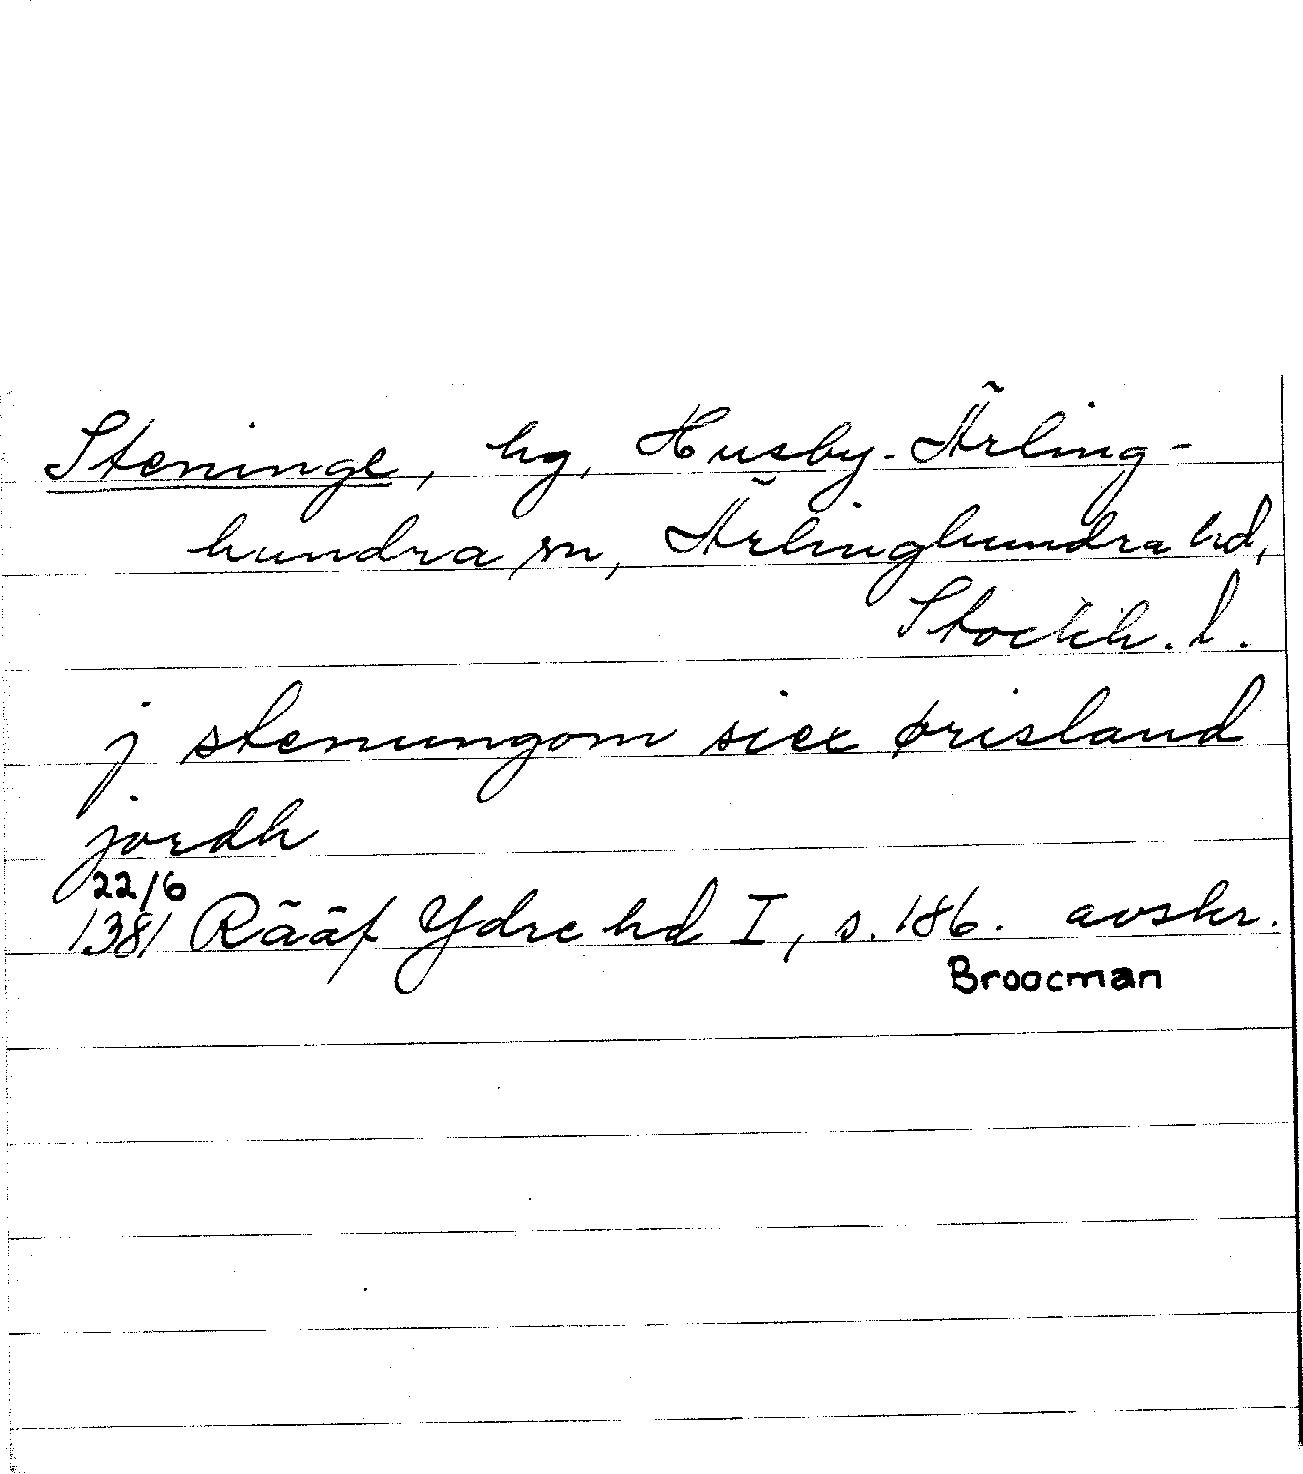 Steninge, hg, Husby-Ärling-
hundra sn, Ärlinghundra hd,
Stockh. l.
j stenungom siex ørisland
jordh
22/6
1381 Rääf Ydre hd I, s. 186. avskr.
Broocman